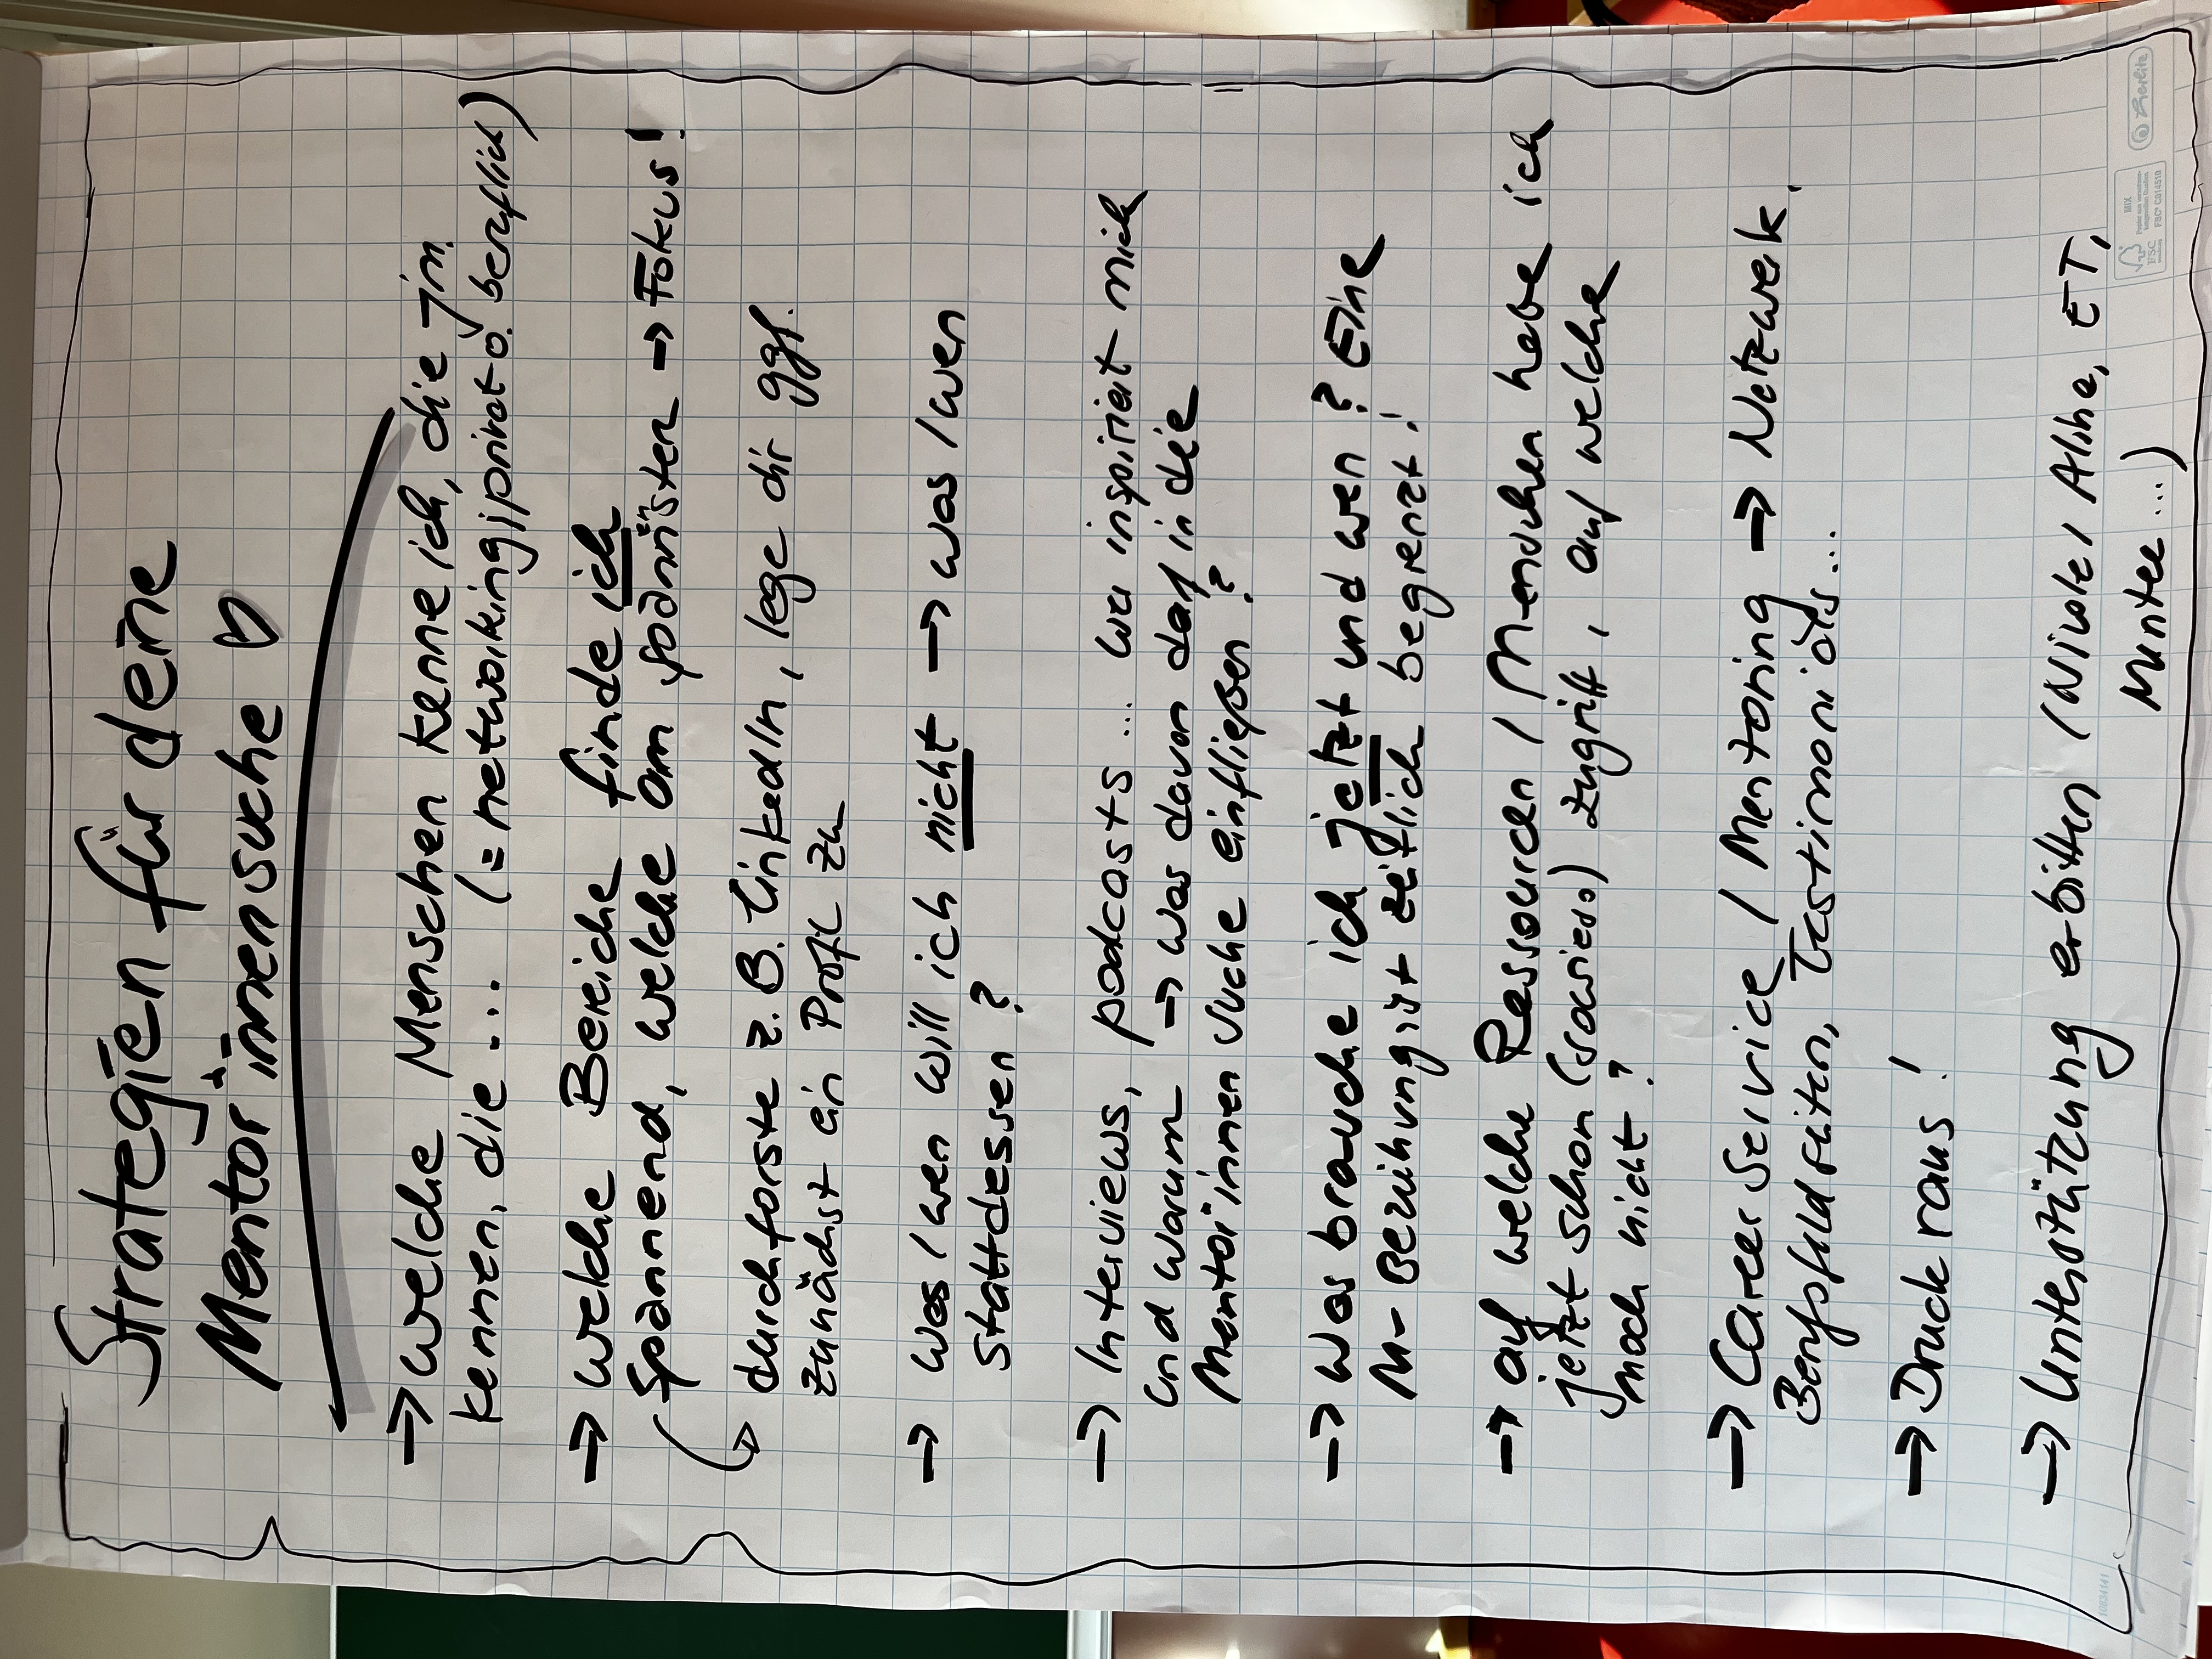 Strategien für deine
Mentor*innensuche ♡
→ welche Menschen kenne ich, die jm.
kennen, die ... (= networking; privat o. beruflich)
→ welche Bereiche finde ich
spannend, welche am spannⁿsten → Fokus!
↳ durchforste z.B. LinkedIn, lege dir ggf.
zunächst ein Profil zu
→ was / wen will ich nicht → was / wen
stattdessen?
→ Interviews, podcasts ... wer inspiriert mich
und warum → was davon darf in die
Mentor*innensuche einfließen?
→ was brauche ich jetzt und wen? Eine
M-Beziehung ist zeitlich begrenzt!
→ auf welche Ressourcen / Menschen habe ich
jetzt schon (sowieso) Zugriff, auf welche
noch nicht?
→ Career Service / Mentoring → Netzwerk,
Berufsfeldseiten, Testimonials...
→ Druck raus!
→ Unterstützung erbitten (Nicole, Aline, ET,
Mentee ...)
MIX
FSC
FSC® C014510
herlitz